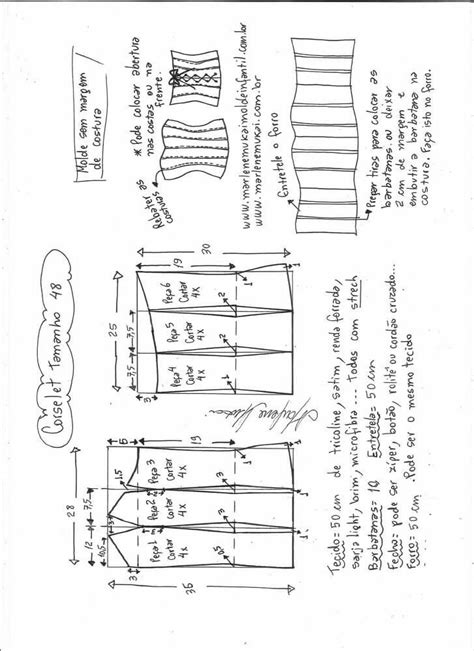 Corselet Tamanho 48
Molde sem margem
de costura
* Pode colocar abertura
nas costas ou na
frente.
Rebater as
costuras
www.marlenemukaimoldeinfantil.com.br
www.marlenemukai.com.br
Entretele o forro
Preparar tiras para colocar as
barbatanas ou deixar
2 cm de margem e
embutir a barbatana na
costura. Faça isto no forro.
28
12
7,5
7,5
10,5
3
3
1,5
5
19
36
Peça 1
Cortar
4x
Peça 2
Cortar
4x
Peça 3
Cortar
4x
1
1
25
7,5
7,5
3
19
30
Peça 4
Cortar
4x
Peça 5
Cortar
4x
Peça 6
Cortar
4x
1
2
2
1
1
Marlene Mukai
Tecido = 50 cm de tricoline, satim, renda forrada,
sarja light, brim, microfibra... Todos com strech
Barbatanas = 10 Entretela = 50 cm
Fecho = pode ser zíper, botão, rolitê ou cordão cruzado...
Forro = 50 cm Pode ser o mesmo tecido